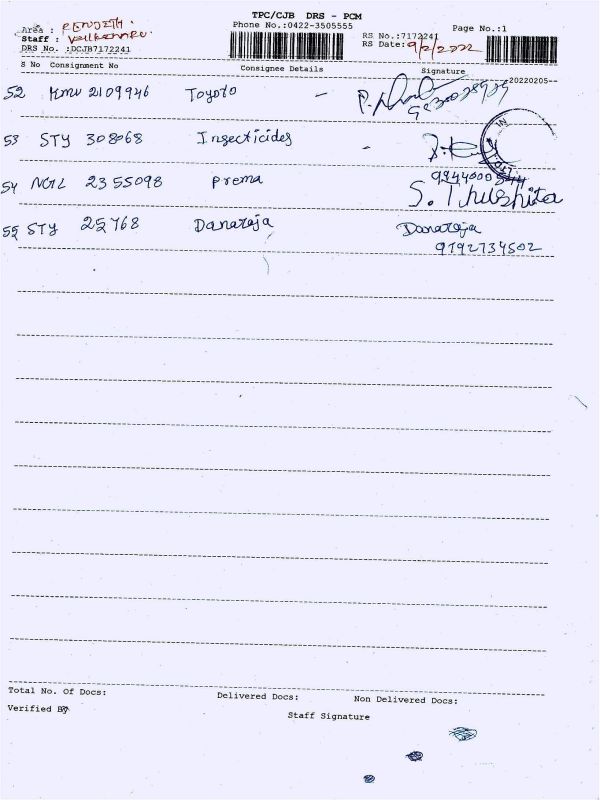 TPC/CJB DRS - PCM
Phone No.:0422-3505555
Page No.:1
Area : RENJITH.
Staff :
RS No.:7172241
RS Date: 9/2/2022
DRS No. :DCJB7172241
S No Consignment No Consignee Details Signature
20220205--
52 HMU 2109946 Toyoto -
53 STY 308068 Insecticides -
54 NGL 2355098 Prema
S. Thushita
55 STY 25768 Danaraja Danaraja
9192734502
Total No. Of Docs: Delivered Docs: Non Delivered Docs:
Verified By
Staff Signature